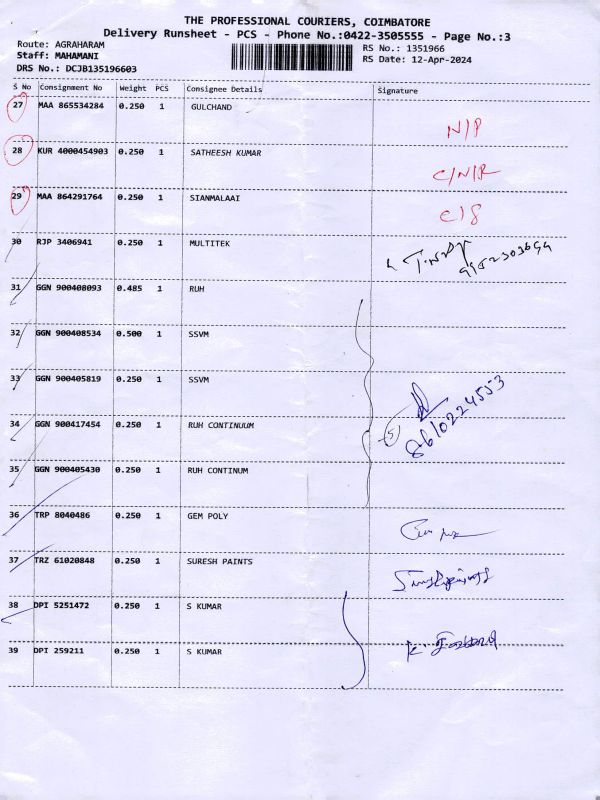 THE PROFESSIONAL COURIERS, COIMBATORE
Delivery Runsheet - PCS - Phone No.:0422-3505555 - Page No.:3
Route: AGRAHARAM RS No.: 1351966
Staff: MAHAMANI RS Date: 12-Apr-2024
DRS No.: DCJB135196603
S No Consignment No Weight PCS Consignee Details Signature
27 MAA 865534284 0.250 1 GULCHAND N/P
28 KUR 4000454903 0.250 1 SATHEESH KUMAR C/N/R
29 MAA 864291764 0.250 1 SIANMALAAI C/S
30 RJP 3406941 0.250 1 MULTITEK
31 GGN 900408093 0.485 1 RUH
32 GGN 900408534 0.500 1 SSVM
33 GGN 900405819 0.250 1 SSVM
34 GGN 900417454 0.250 1 RUH CONTINUUM 5 8610224553
35 GGN 900405430 0.250 1 RUH CONTINUM
36 TRP 8040486 0.250 1 GEM POLY
37 TRZ 61020848 0.250 1 SURESH PAINTS
38 DPI 5251472 0.250 1 S KUMAR
39 DPI 259211 0.250 1 S KUMAR